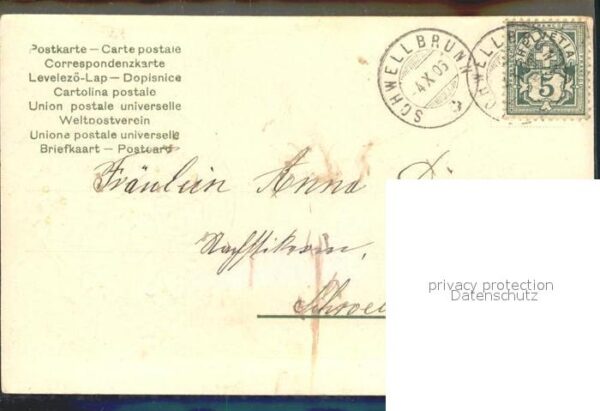 Postkarte – Carte postale
Correspondenzkarte
Levelező-Lap – Dopisnice
Cartolina postale
Union postale universelle
Weltpostverein
Unione postale universelle
Briefkaart – Postcard
SCHWELLBRUNN
-4.X.05
SCHWELLB
HELVETIA
5
Fräulein Anna
privacy protection
Datenschutz